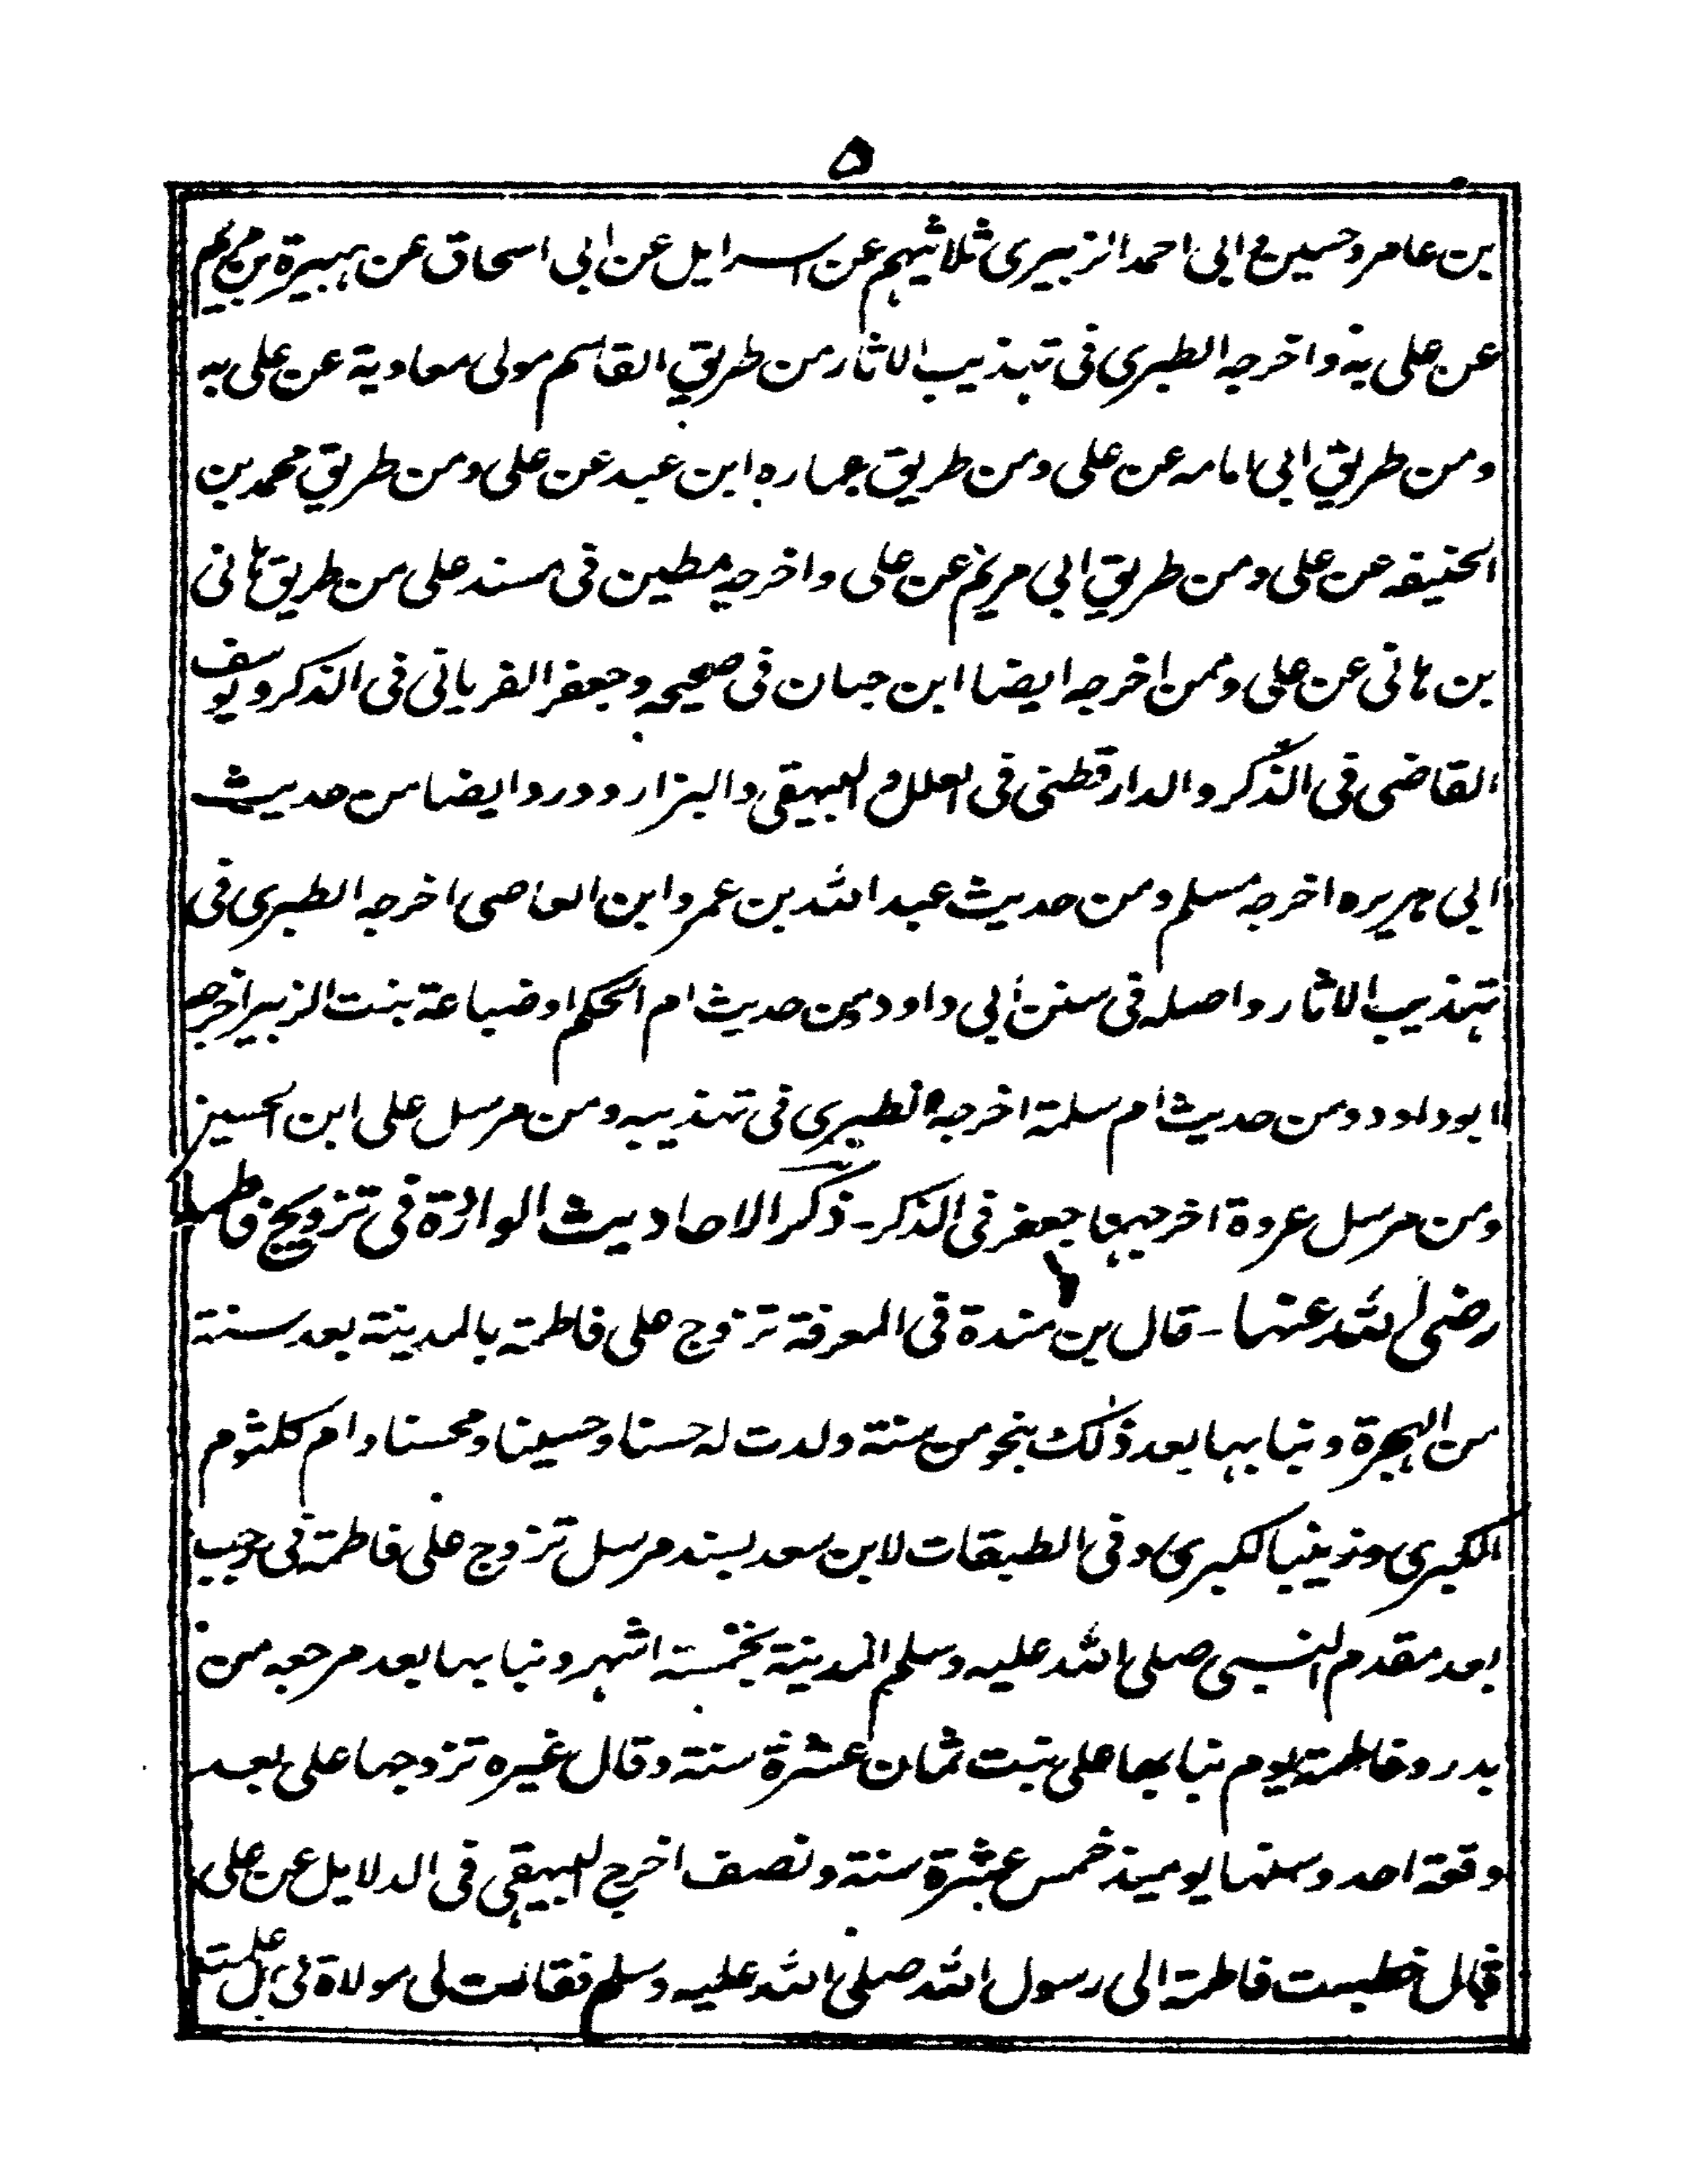 ٥
بن عامر وحسين و ابى احمد الزبيرى ثلاثتهم عن اسرايل عن ابى اسحاق عن هبيرة بن مريم
عن على به واخرجه الطبرى فى تهذيب الاثار من طريق القاسم مولى معاوية عن على به
ومن طريق ابى امامه عن على ومن طريق عماره ابن عبد عن على ومن طريق محمد بن
الحنيفه عن على ومن طريق ابى مريم عن على واخرجه مطين فى مسند على من طريق هانى
بن هانى عن على وممن اخرجه ايضا ابن حبان فى صحيحه وجعفر الفريانى فى الذكر ويوسف
القاضى فى الذكر والدارقطنى فى العلل و البيهقى والبزار وورد ايضا من حديث
ابى هريره اخرجه مسلم ومن حديث عبد الله بن عمر وابن العاصى اخرجه الطبرى فى
تهذيب الاثار واصله فى سنن ابى داود ومن حديث ام الحكم او ضباعة بنت الزبير اخرجه
ابو داود ومن حديث ام سلمة اخرجه الطبرى فى تهذيبه ومن مرسل على ابن الحسين
ومن مرسل عروة اخرجهما جعفر فى الذكر - ذكر الاحاديث الواردة فى تزويج فاطمة
رضى الله عنها - قال بن مندة فى المعرفة تزوج على فاطمة بالمدينة بعد سنة
من الهجرة وبنا بها بعد ذلك بنحو من سنة ولدت له حسنا وحسينا ومحسنا وام كلثوم
الكبرى وزينب الكبرى وفى الطبقات لابن سعد بسند مرسل تزوج على فاطمة فى رجب
بعد مقدم النبى صلى الله عليه وسلم المدينة بخمسة اشهر وبنا بها بعد مرجعه من
بدر وفاطمة يوم بنا بها على بنت ثمان عشرة سنة وقال غيره تزوجها على بعد
وقعة احد وسنها يوميذ خمس عشرة سنة ونصف اخرج البيهقى فى الدلايل عن على
قال خطبت فاطمة الى رسول الله صلى الله عليه وسلم فقالت لى مولاة لى هل علمت